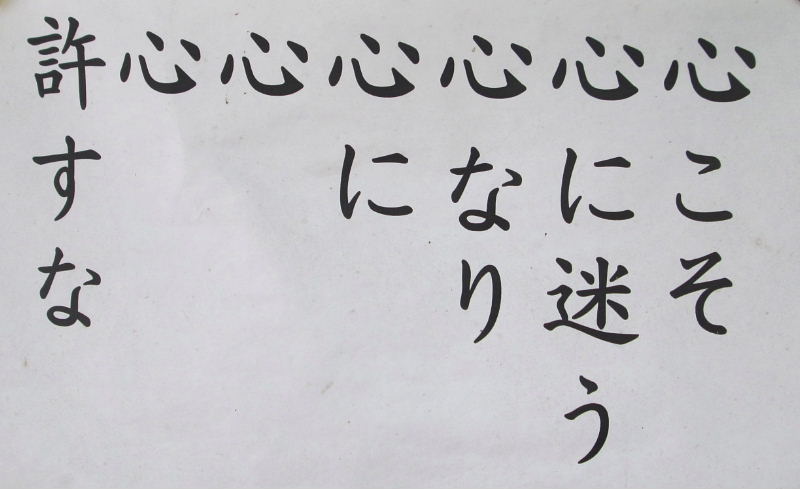 心こそ
心に迷う
心なり
心に
心
心
許すな